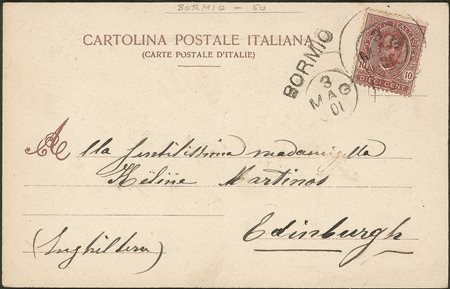 BORMIO - 50
CARTOLINA POSTALE ITALIANA
(CARTE POSTALE D'ITALIE)
BORMIO
3
MAG
01
10 10
Alla Gentilissima madamigella
Hélène Martinos
Edinburgh
(Inghilterra)